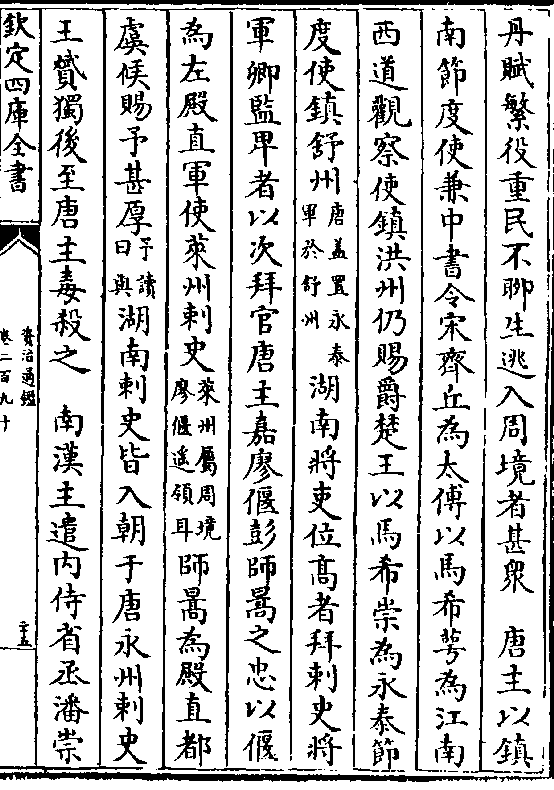 丹賦繁役重民不聊生逃入周境者甚衆　唐主以鎮
南節度使兼中書令宋齊丘為太傅以馬希萼為江南
西道觀察使鎮洪州仍賜爵楚王以馬希崇為永泰節
度使鎮舒州唐盖置永泰軍於舒州湖南將吏位髙者拜刺史將
軍卿監卑者以次拜官唐主嘉廖偃彭師暠之忠以偃
為左殿直軍使萊州刺史萊州屬周境廖偃遥領耳師暠為殿直都
虞候賜予甚厚予讀曰與湖南刺史皆入朝于唐永州刺史
王贇獨後至唐主毒殺之　南漢主遣内侍省丞潘崇
欽定四庫全書
資治通鑑
卷二百九十
二十五